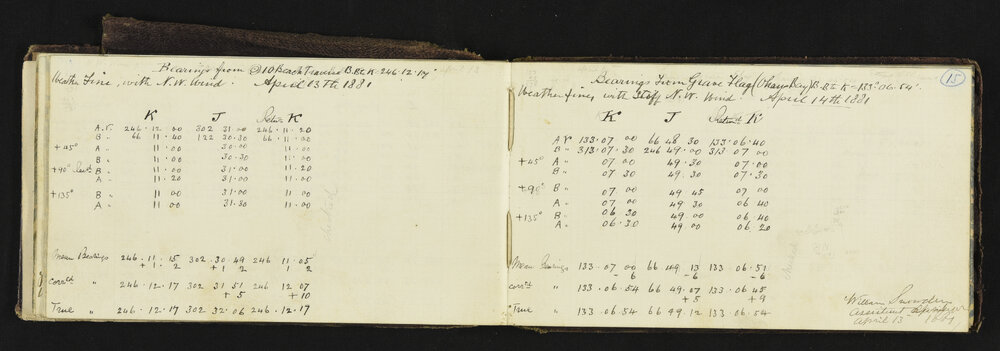 Bearings from D10 Beach Traverse B.Bt K. 246.12.17
Weather Fine, with N.W. Wind. April 13th 1881
K J Return K
A.V. 246.12.00 302 31.00 246.11.20
B " 66 11.40 122 30.30 66.11.00
+45° A " 11.00 30.00 11.00
B " 11.00 30.30 11.00
+90° B " 11.00 31.00 11.20
A " 11.20 31.00 11.00
+135° B " 11 00 31.00 11.00
A " 11 00 31.30 11.00
Mean Bearings 246.11.15 302.30.49 246 11.05
+1.2 +1 2 1 2
corrctd " 246.12.17 302 31 51 246 12 07
+5 +10
True " 246.12.17 302 32 06 246.12.17
15
Bearings From Grave Flag (Okains Bay) B.Bt K = 133°.06.54"
Weather fine, with Stiff N.W. Wind. April 14th 1881
K J Return K
A V 133.07 00 66 48 30 133.06.40
B " 313.07.30 246 49.00 313 07.00
+45° A " 07 00 49.30 07.00
B " 07 30 49.30 07.30
+90° B " 07 00 49 45 07 00
A " 07 00 49 30 06 40
+135° B " 06 30 49 00 06 40
A " 06.30 49 00 06 20
Mean Bearings 133.07 00 66 49 13 133.06.51
-6 -6 -6
corrctd " 133.06.54 66 49.07 133 06 45
+5 +9
True " 133.06.54 66 49 12 133 06.54
William
Assistant
April 13 1881